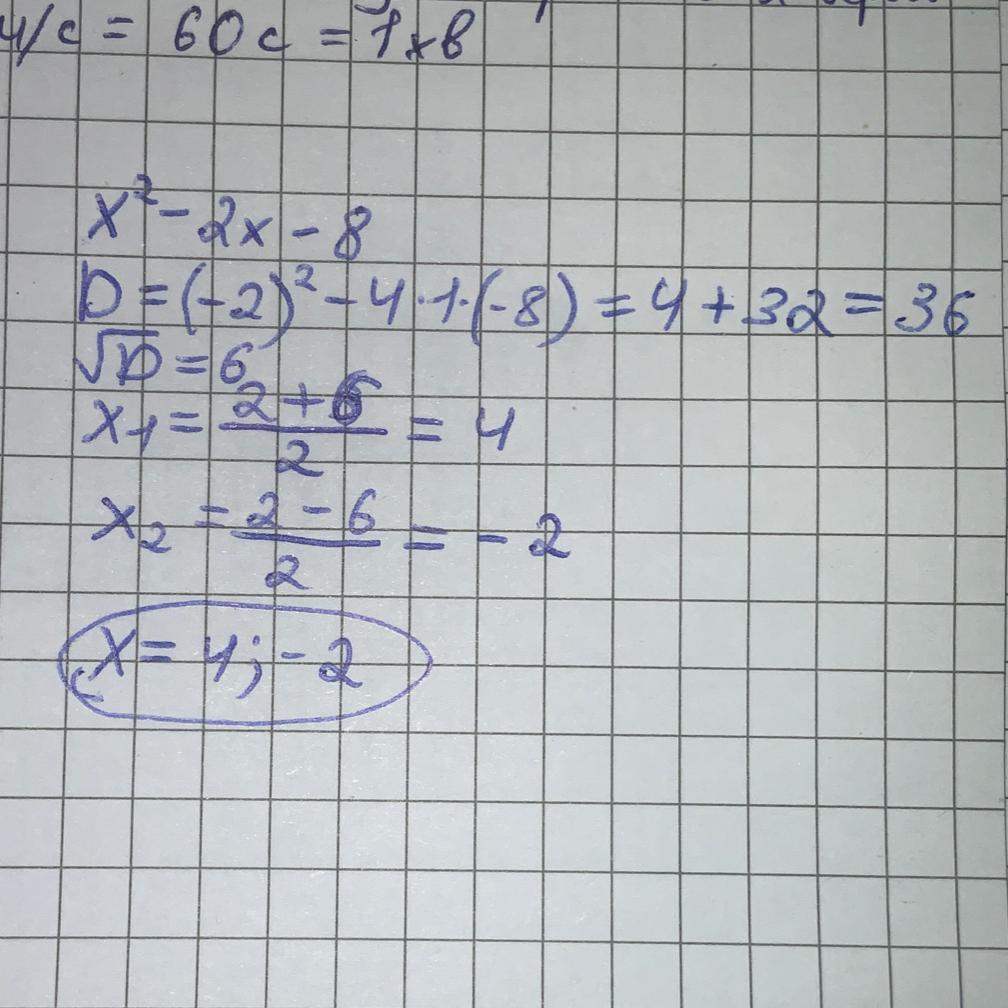 ч/с = 60 с = 1 хв
x² - 2x - 8
D = (-2)² - 4·1·(-8) = 4 + 32 = 36
√D = 6
x₁ = (2 + 6)/2 = 4
x₂ = (2 - 6)/2 = - 2
x = 4; - 2